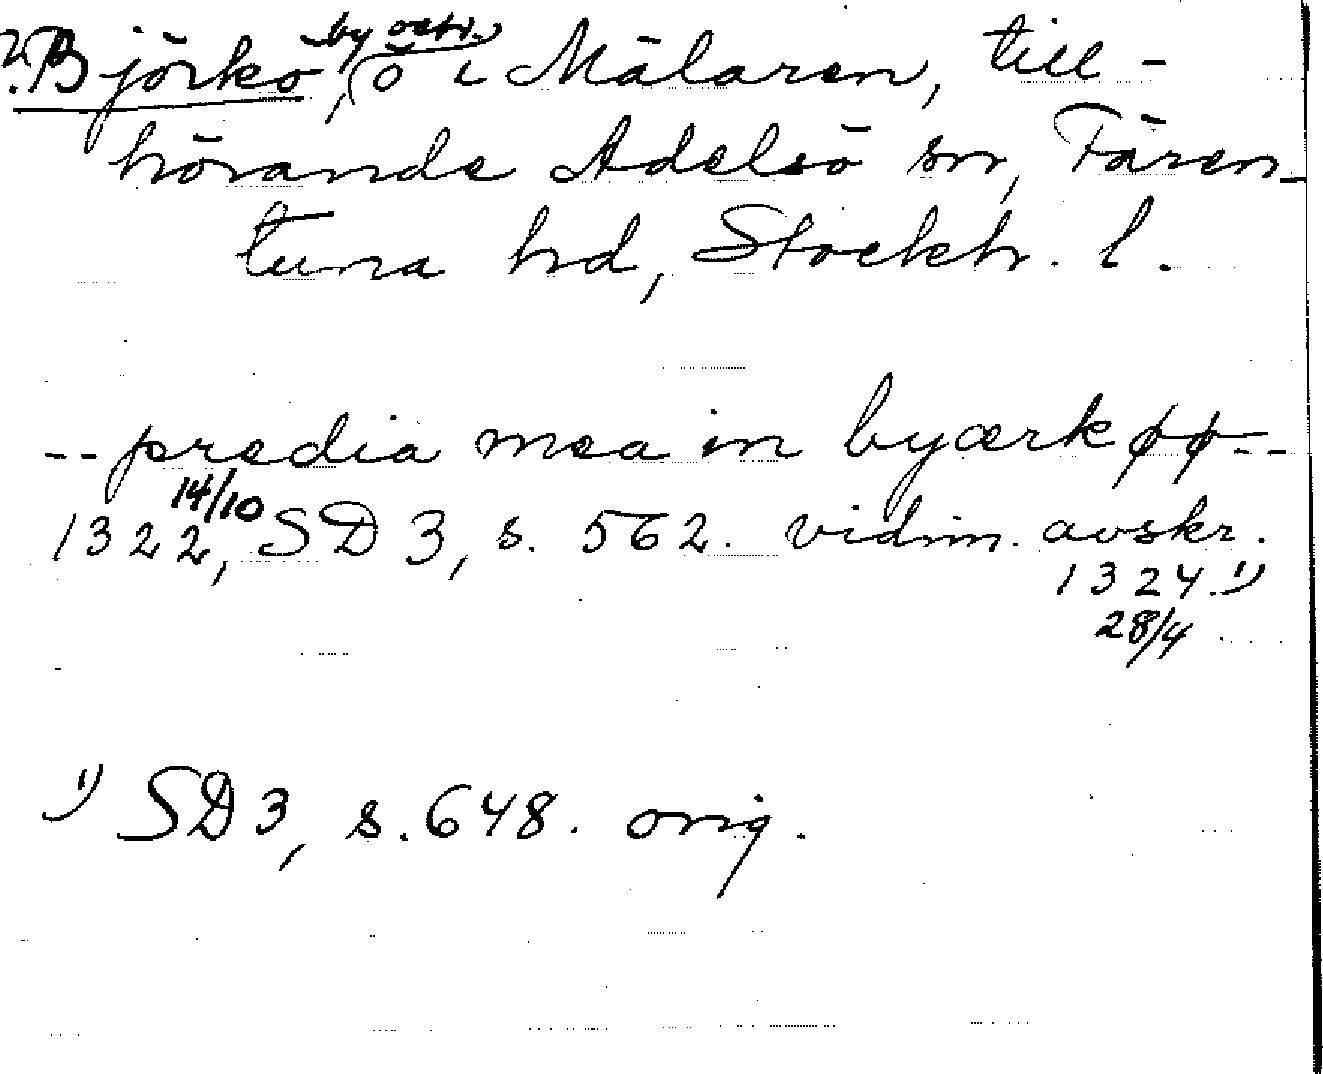 2. Björkö, by och ö i Mälaren, till-
hörande Adelsö sn, Fären-
tuna hd, Stockh. l.
-- predia mea in byærkøø --
1322 14/10, SD 3, s. 562. vidim. avskr.
1324. 1)
28/4
1) SD 3, s. 648. orig.